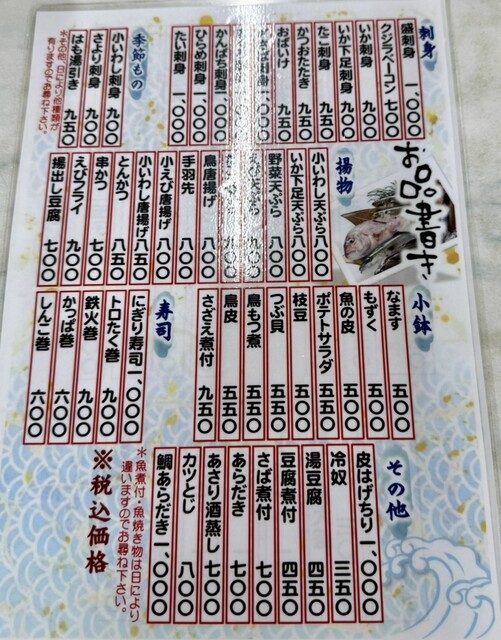 お品書き
刺身
盛刺身 一、〇〇〇
クジラベーコン 七〇〇
いか刺身 九〇〇
いか下足刺身 九〇〇
たこ刺身 九〇〇
かつおたたき 九五〇
おばいけ 九五〇
かんぱち刺身 一、〇〇〇
ひらめ刺身 一、〇〇〇
たい刺身 一、〇〇〇
季節もの
小いわし刺身 九〇〇
さより刺身 九〇〇
はも湯引き 九五〇
※その他、日により他種類が
有りますのでお尋ね下さい。
揚物
小いわし天ぷら 八〇〇
いか下足天ぷら 八〇〇
野菜天ぷら 八〇〇
えび天ぷら 九〇〇
鳥唐揚げ 八〇〇
手羽先 八〇〇
小えび唐揚げ 八〇〇
小いわし唐揚げ 八五〇
とんかつ 八五〇
串かつ 七〇〇
えびフライ 九〇〇
揚出し豆腐 七〇〇
小鉢
なます 五〇〇
もずく 五〇〇
魚の皮 五〇〇
ポテトサラダ 五五〇
枝豆 五五〇
つぶ貝 五五〇
鳥もつ煮 五五〇
鳥皮 五五〇
さざえ煮付 九五〇
寿司
にぎり寿司 一、〇〇〇
トロたく巻 九〇〇
鉄火巻 九〇〇
かっぱ巻 六〇〇
しんこ巻 六〇〇
その他
皮はげちり 一、〇〇〇
冷奴 三五〇
湯豆腐 四五〇
豆腐煮付 四五〇
さば煮付 七〇〇
あらだき 七〇〇
あさり酒蒸し 七〇〇
カツとじ 八〇〇
鯛あらだき 一、〇〇〇
※魚煮付・魚焼き物は日により
違いますのでお尋ね下さい。
※税込価格